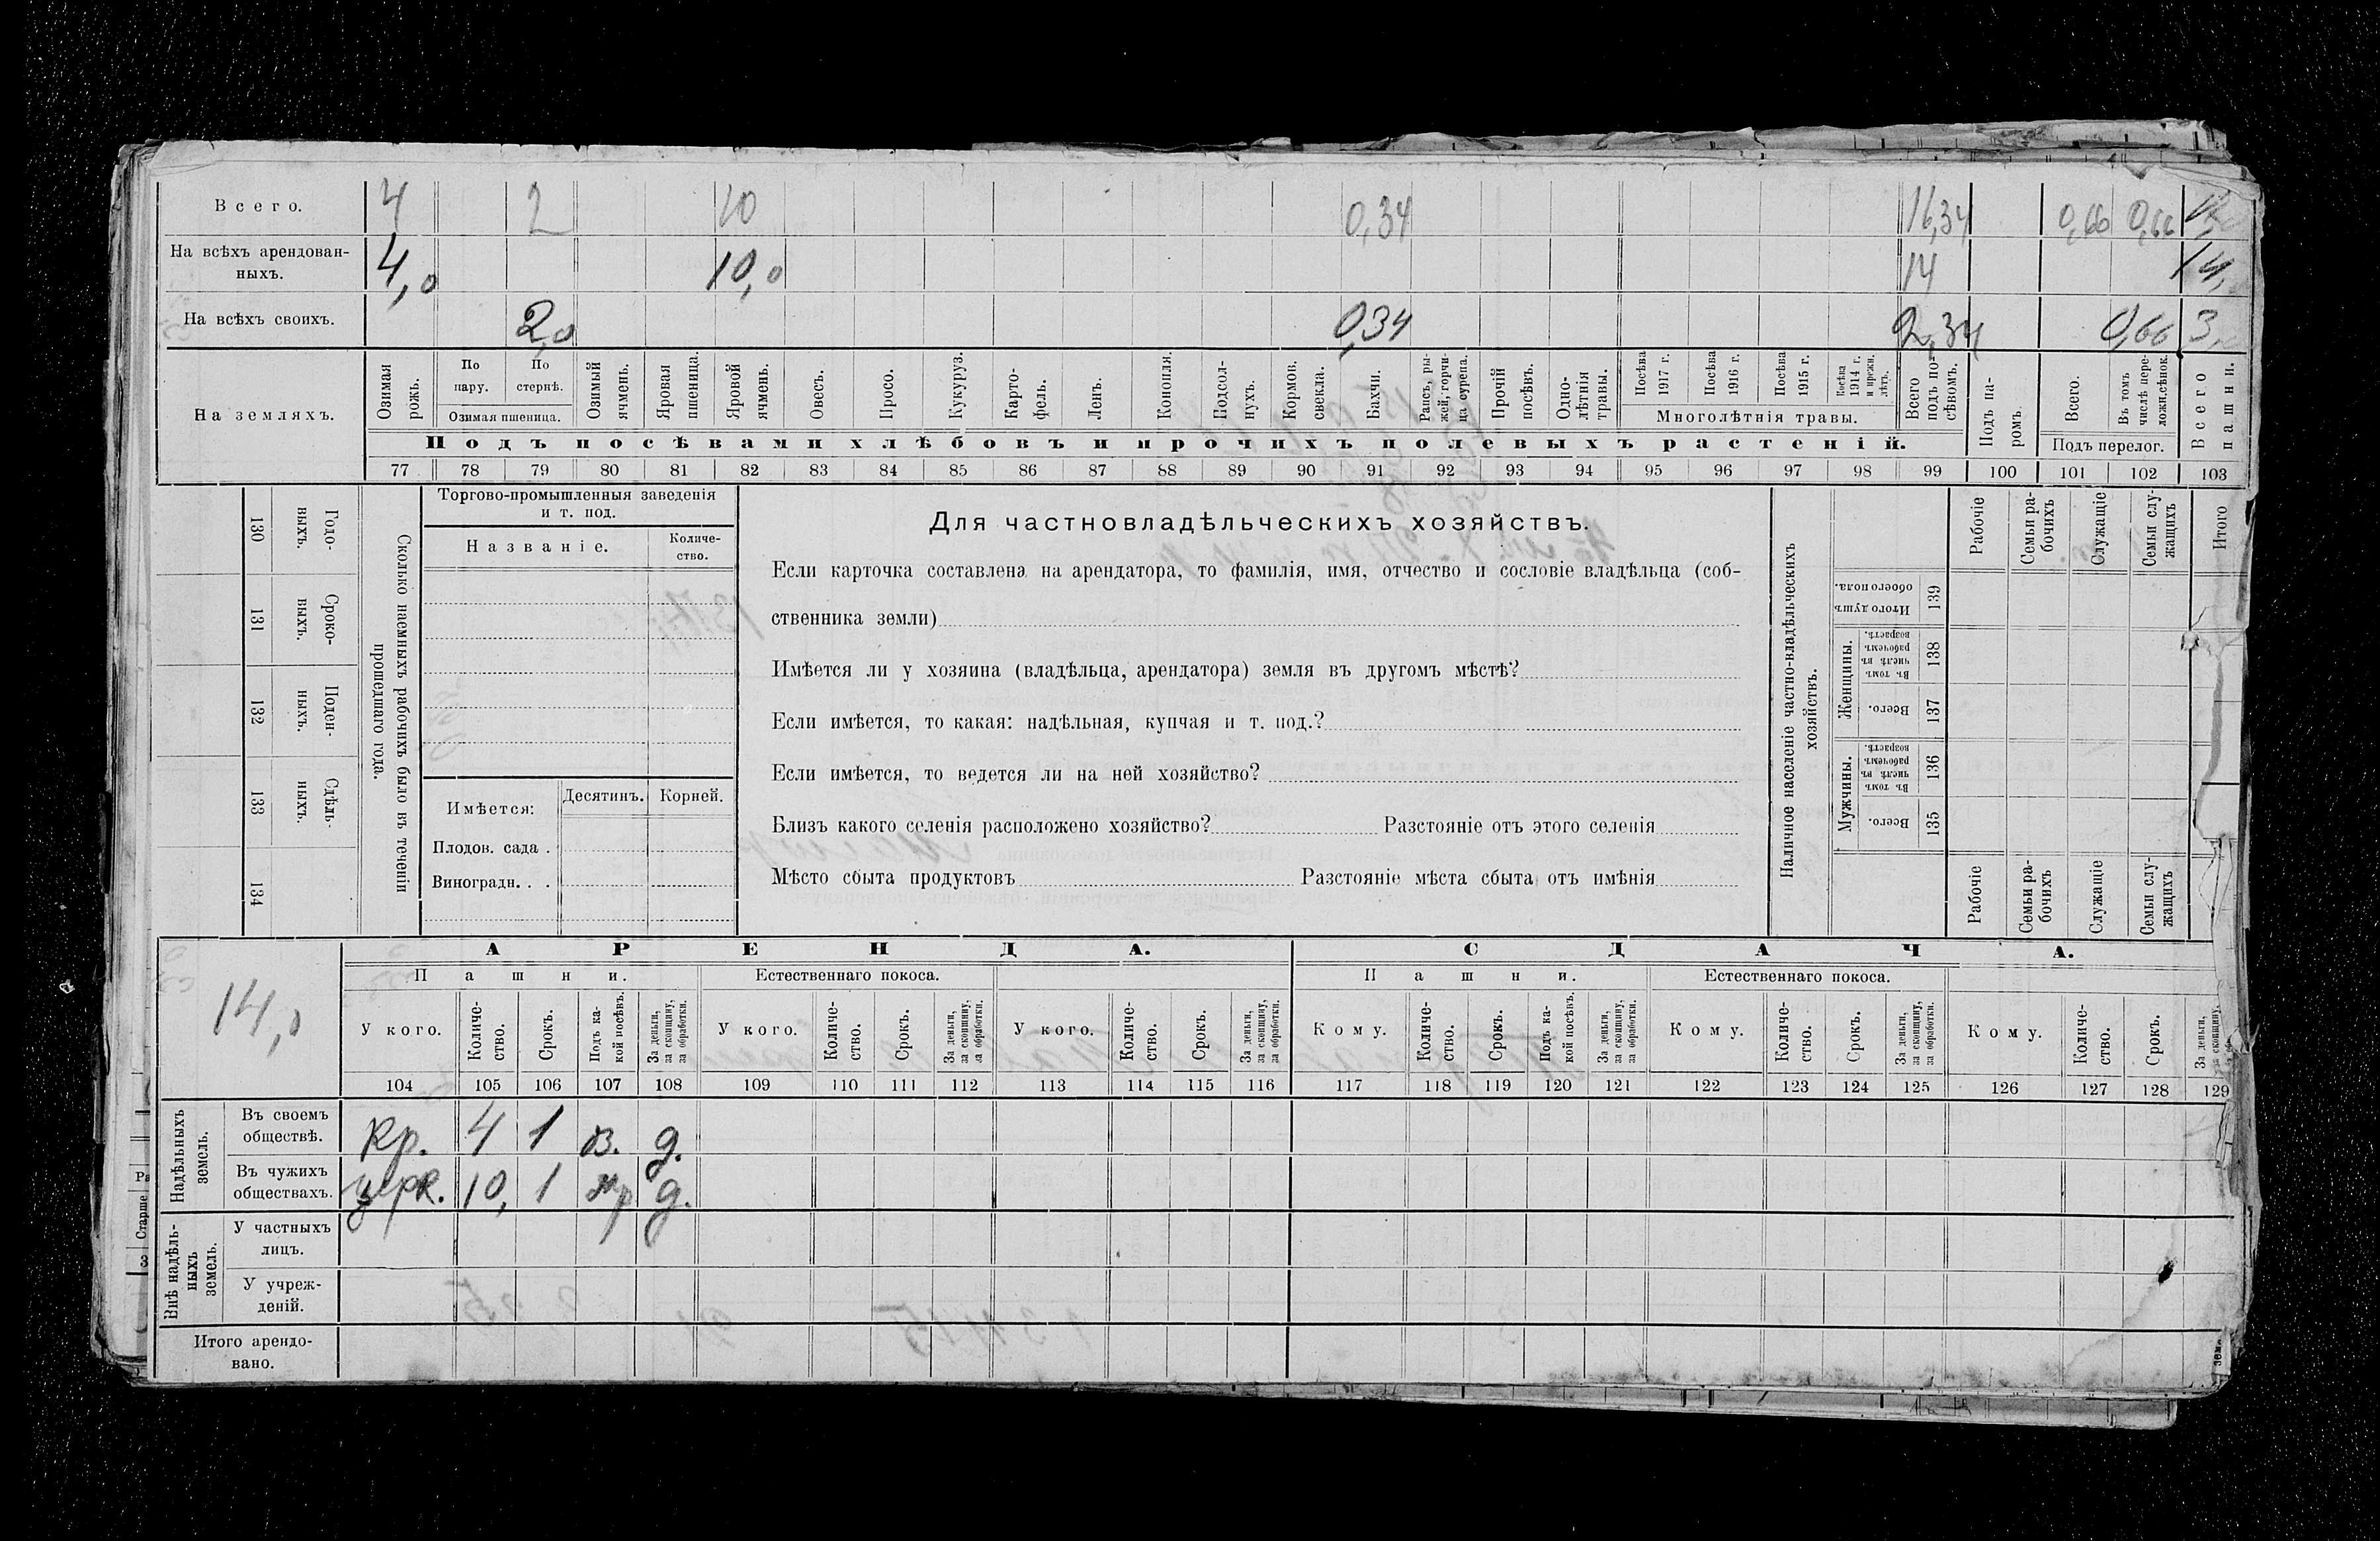 Всего. 4 2 10 0,34 16,34 0,66 0,66
На всѣхъ арендован-
ныхъ. 4,0 10,0 14 14,
На всѣхъ своихъ. 2,0 0,34 2,34 0,66 3,
На земляхъ.
Озимая рожь.
По пару.
По стернѣ.
Озимая пшеница.
Озимый ячмень.
Яровая пшеница.
Яровой ячмень.
Овесъ.
Просо.
Кукуруз.
Карто-
фель.
Ленъ.
Конопля.
Подсол-
нухъ.
Кормов.
свекла.
Бахчи.
Рапсъ, ры-
жей, горчи-
ца сурепа.
Прочій
посѣвъ.
Одно-
лѣтнія
травы.
Посѣва
1917 г.
Посѣва
1916 г.
Посѣва
1915 г.
Посѣва
1914 г.
и прежн.
лѣтъ.
Многолѣтнія травы.
Всего
подъ по-
сѣвомъ.
Подъ па-
ромъ.
Всего.
Въ томъ
числѣ пере-
ложн.сѣнок.
Подъ перелог.
Всего
пашни.
Подъ посѣвами хлѣбовъ и прочихъ полевыхъ растеній.
77 78 79 80 81 82 83 84 85 86 87 88 89 90 91 92 93 94 95 96 97 98 99 100 101 102 103
130 Годо-
ныхъ.
131 Сроко-
выхъ.
132 Поден-
ныхъ.
133 Сдѣль-
ныхъ.
134
Сколько наемныхъ рабочихъ было въ теченіи
прошедшаго года.
Торгово-промышленныя заведенія
и т. под.
Названіе.
Количе-
ство.
Имѣется:
Десятинъ.
Корней.
Плодов. сада .
Виноградн. . .
Для частновладѣльческихъ хозяйствъ.
Если карточка составлена на арендатора, то фамилія, имя, отчество и сословіе владѣльца (соб-
ственника земли)
Имѣется ли у хозяина (владѣльца, арендатора) земля въ другомъ мѣстѣ?
Если имѣется, то какая: надѣльная, купчая и т. под.?
Если имѣется, то ведется ли на ней хозяйство?
Близъ какого селенія расположено хозяйство? Разстояніе отъ этого селенія
Мѣсто сбыта продуктовъ Разстояніе мѣста сбыта отъ имѣнія
Наличное населеніе частно-владѣльческихъ
хозяйствъ.
Рабочіе
Семьи ра-
бочихъ
Служащіе
Семьи слу-
жащихъ
Итого
Итого душъ
обоего пола.
139
Женщины.
Въ томъ
числѣ въ
рабочемъ
возрастѣ.
138
Всего.
137
Мужчины.
Въ томъ
числѣ въ
рабочемъ
возрастѣ.
136
Всего.
135
Рабочіе
Семьи ра-
бочихъ
Служащіе
Семьи слу-
жащихъ
14,0
АРЕНДА.
СДАЧА.
Пашни.
Естественнаго покоса.
Пашни.
Естественнаго покоса.
У кого.
Количе-
ство.
Срокъ.
Подъ ка-
кой посѣвъ.
За деньги,
за скопщину,
за обработки.
У кого.
Количе-
ство.
Срокъ.
За деньги,
за скопщину,
за обработки.
У кого.
Количе-
ство.
Срокъ.
За деньги,
за скопщину,
за обработки.
Кому.
Количе-
ство.
Срокъ.
Подъ ка-
кой посѣвъ.
За деньги,
за скопщину,
за обработки.
Кому.
Количе-
ство.
Срокъ.
За деньги,
за скопщину,
за обработки.
Кому.
Количе-
ство.
Срокъ.
За деньги,
за скопщину,
104 105 106 107 108 109 110 111 112 113 114 115 116 117 118 119 120 121 122 123 124 125 126 127 128 129
Надѣльныхъ
земель.
Въ своемъ
обществѣ. кр. 4 1 оз. д.
Въ чужихъ
обществахъ. церк. 10, 1 яр д.
Внѣ надѣль-
ныхъ
земель.
У частныхъ
лицъ.
У учреж-
деній.
Итого арендо-
вано.